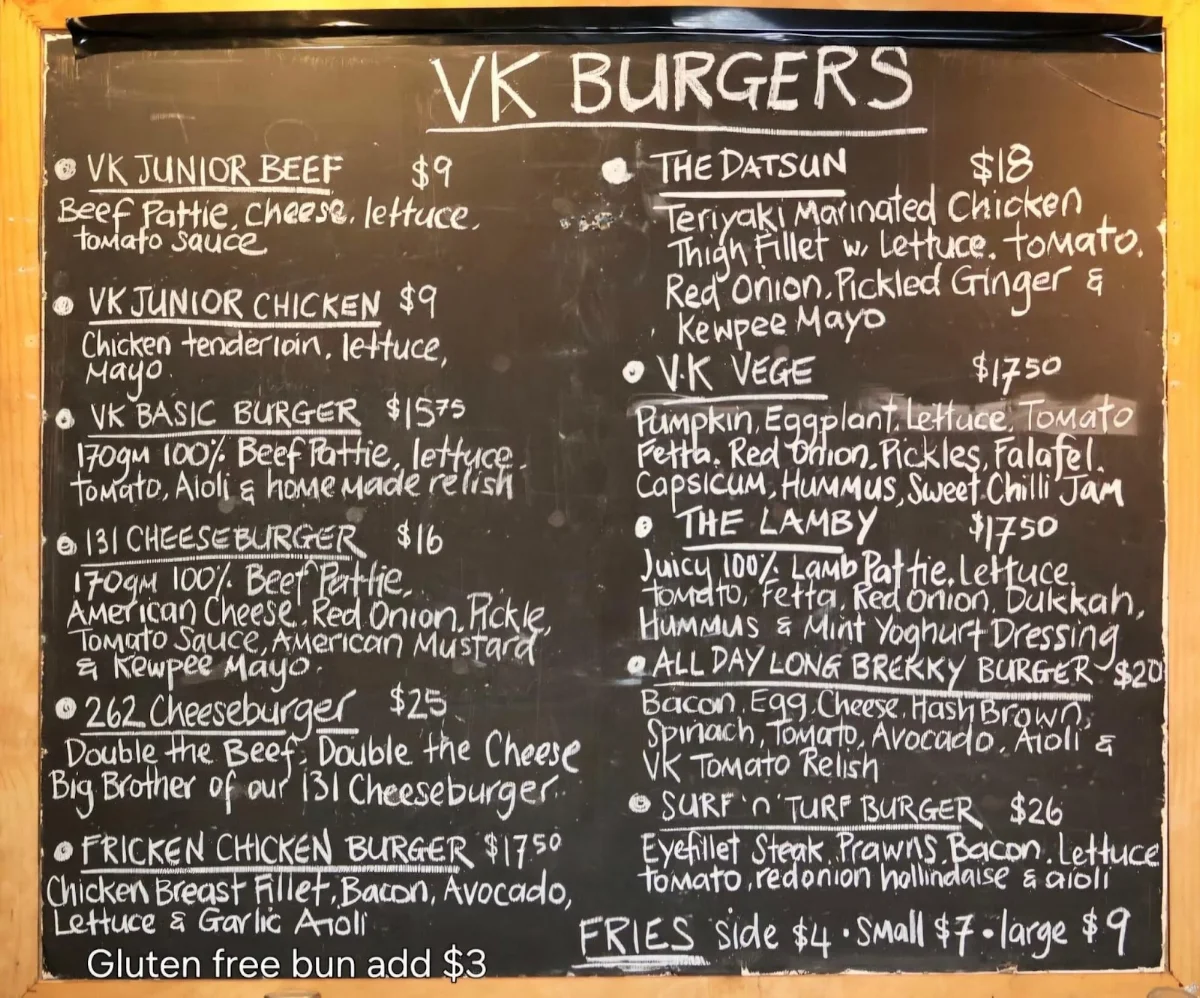 VK BURGERS
VK JUNIOR BEEF $9
Beef Pattie, cheese, lettuce,
tomato sauce
VK JUNIOR CHICKEN $9
Chicken tenderloin, lettuce,
Mayo.
VK BASIC BURGER $15 75
170gm 100% Beef Pattie, lettuce,
Tomato, Aioli & home made relish
131 CHEESEBURGER $16
170gm 100% Beef Pattie,
American Cheese, Red Onion, Pickle,
Tomato Sauce, American Mustard
& Kewpee Mayo.
262 Cheeseburger $25
Double the Beef, Double the Cheese
Big Brother of our 131 Cheeseburger.
FRICKEN CHICKEN BURGER $17 50
Chicken Breast Fillet, Bacon, Avocado,
Lettuce & Garlic Aioli
Gluten free bun add $3
THE DATSUN $18
Teriyaki Marinated Chicken
Thigh Fillet w/ Lettuce, Tomato,
Red Onion, Pickled Ginger &
Kewpee Mayo
V.K VEGE $17 50
Pumpkin, Eggplant, Lettuce, Tomato
Fetta, Red Onion, Pickles, Falafel,
Capsicum, Hummus, Sweet Chilli Jam
THE LAMBY $17 50
Juicy 100% Lamb Pattie, Lettuce,
Tomato, Fetta, Red Onion, Dukkah,
Hummus & Mint Yoghurt Dressing
ALL DAY LONG BREKKY BURGER $20
Bacon, Egg, Cheese, Hash Brown,
Spinach, Tomato, Avocado, Aioli &
VK Tomato Relish
SURF 'n' TURF BURGER $26
Eyefillet Steak, Prawns, Bacon, Lettuce
Tomato, red onion hollindaise & aioli
FRIES side $4 • small $7 • large $9